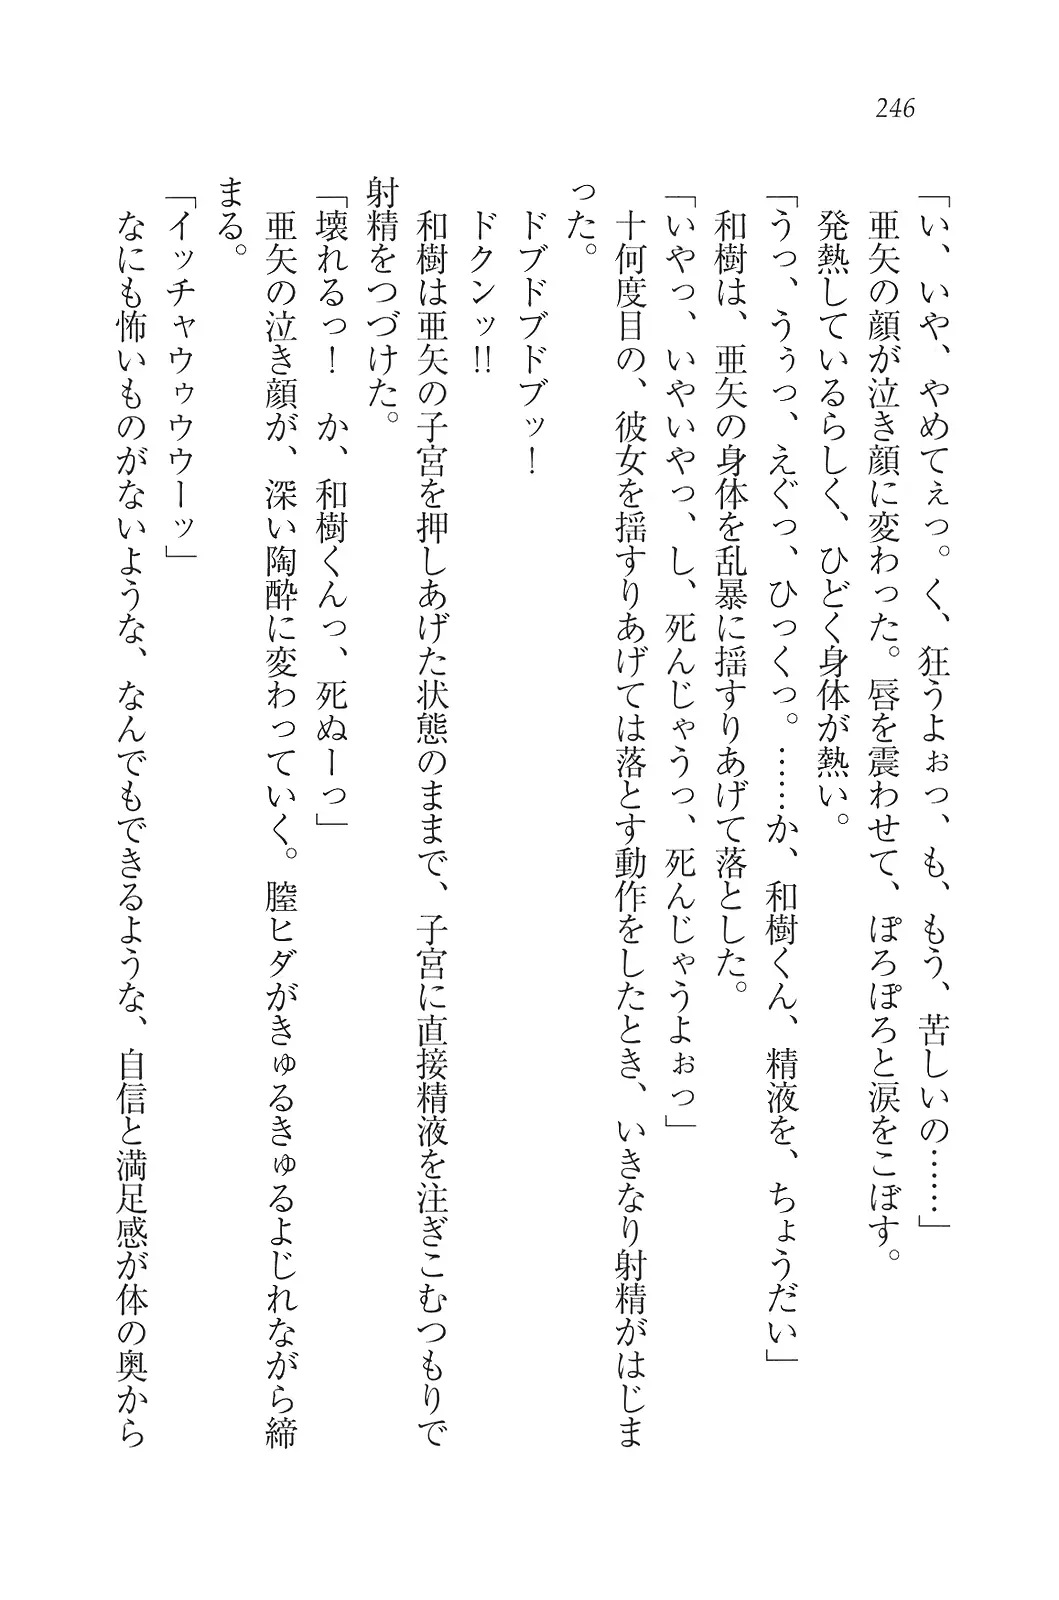 246
「い、いや、やめてぇっ。く、狂うよぉっ、も、もう、苦しいの……」
亜矢の顔が泣き顔に変わった。唇を震わせて、ぽろぽろと涙をこぼす。
発熱しているらしく、ひどく身体が熱い。
「うっ、うぅっ、えぐっ、ひっくっ。……か、和樹くん、精液を、ちょうだい」
和樹は、亜矢の身体を乱暴に揺すりあげて落とした。
「いやっ、いやいやっ、し、死んじゃうっ、死んじゃうよぉっ」
十何度目の、彼女を揺すりあげては落とす動作をしたとき、いきなり射精がはじま
った。
ドブドブドブッ！
ドクンッ!!
和樹は亜矢の子宮を押しあげた状態のままで、子宮に直接精液を注ぎこむつもりで
射精をつづけた。
「壊れるっ！　か、和樹くんっ、死ぬーっ」
亜矢の泣き顔が、深い陶酔に変わっていく。膣ヒダがきゅるきゅるよじれながら締
まる。
「イッチャウゥウウーッ」
なにも怖いものがないような、なんでもできるような、自信と満足感が体の奥から